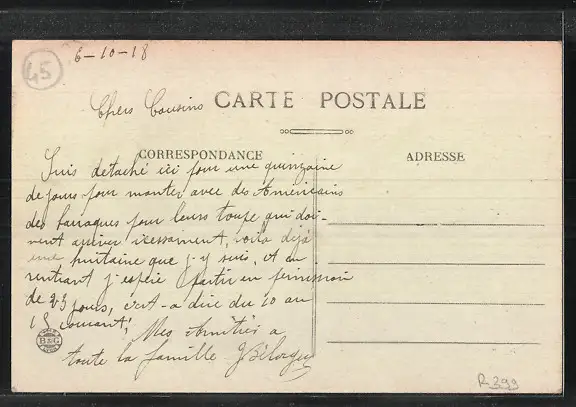 6-10-18
45
Chers Cousins
CARTE POSTALE
CORRESPONDANCE
ADRESSE
Suis detaché ici pour une quinzaine
de jours pour monter avec des Américains
des barraques pour leurs troupe qui doi-
vent arriver incessament, voila déjà
une huitaine que j-y suis, et en
rentrant j'espère partir en permission
de 23 jours, c'est-a dire du 10 au
15 courant,
Mes Amitiés a
toute la famille
B&G
R399